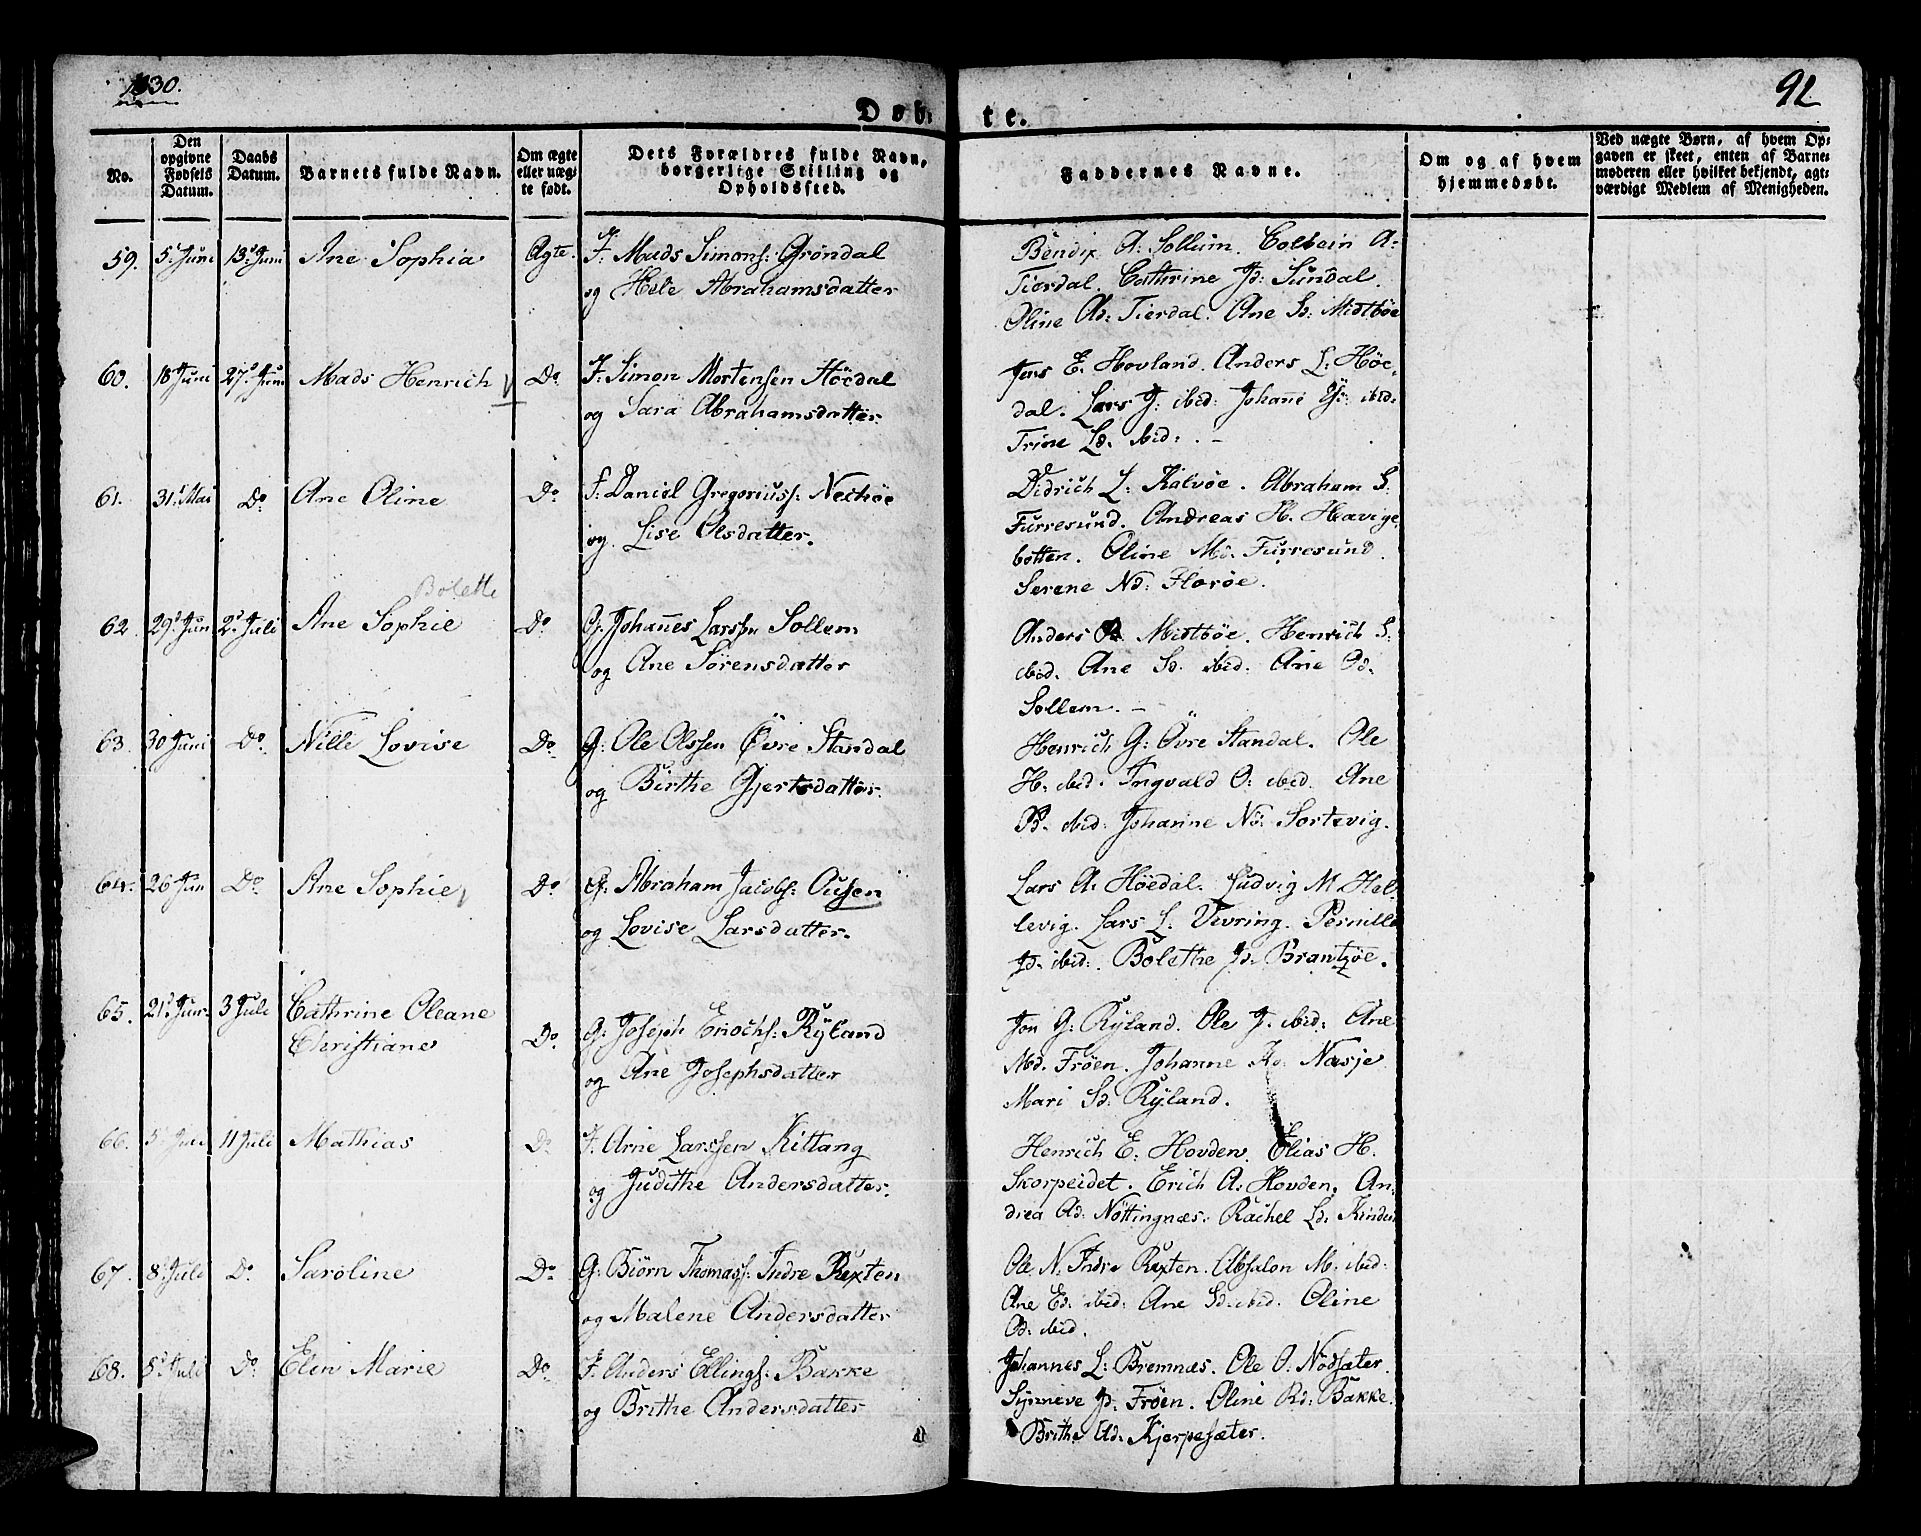 1830.
92
Døbte.
No.
Den opgivne Fødsels Datum.
Daabs Datum.
Barnets fulde Navn.
Om ægte eller uægte født.
Dets Forældres fulde Navn, borgerlige Stilling og Opholdssted.
Faddernes Navne.
Om og af hvem hjemmedøbt.
Ved uægte Børn, af hvem Opgaven er skeet, enten af Barnemoderen eller hvilket bekjendt, agtværdigt Medlem af Menigheden.
59. 5t Juni 13t Juni Ane Sophia Ægte. F. Mads Simons: Gröndal
og Hele Abrahamsdatter
Bendix A: Sollum. Colbein A:
Tierdal. Cathrine Jd: Sundal.
Oline Ad: Tierdal. Ane Sd: Mistböe
60. 18t Juni 27t Juni Mads Henrich Do. F. Simon Mortensen Höedal
og Sara Abrahamsdatter
Jens E. Hovland. Anders L: Höe-
dal. Lars J: ibid: Johane ibid:
Trine Ld. ibid: . –
61. 31t Mai Do Ane Oline Do F. Daniel Gregoriuss: Nechöe
og Lise Olsdatter.
Didrich L: Kalvöe. Abraham S:
Furresund. Andreas H. Heavige
botten. Oline Md: Furresund.
Serene Nd: Floröe.
Bolette
62 29t Jun 2t Juli Ane Sophie Do. G. Johannes Larssen Sollem
og Ane Sörensdatter
Anders Mistböe. Henrich S:
ibid. Ane Sd. ibid: Ane Od.
Sollem. –
63. 30 Juni Do. Nille Lovise Do. G: Ole Olssen Övre Standal
og Birthe Gjertsdatter.
Henrich G: Övre Standal. Ole
H. ibid. Ingvald O: ibid. Ane
ibid: Johanne Nd: Sortevig.
64. 26 Jun Do. Ane Sophie Do G. Abraham Jacobs: Ousen
og Lovise Larsdatter.
Lars A. Höedal. Ludvig M. Hel-
levig. Lars L. Vevring. Pernille
Jd. ibid: . Bolethe Jd. Brantzöe.
65. 21t Jun. 3 Juli Cathrine Oleane
Christiane Do. G: Joseph Enochs: Ryland
og Ane Josephsdatter
Jon G: Ryland. Ole J. ibid: Ane
Md. Fröen. Johanne Næsje
Mari Sd: Ryland.
66. 5t 11 Juli Mathias Do F. Arne Larssen Kittang
og Judithe Andersdatter.
Henrich E: Hovden. Elias H.
Skorpeidet. Erich A: Hovden. An-
drea Ad: Nöttingnæs. Rachel Ld. Kinden
67. 8t Juli Do. Saroline Do. G: Biörn Thomass: Indre Rexten
og Malene Andersdatter
Ole N. Indre Rexten. Absalon M: ibid:
Ane Ed. ibid: Ane Sd. ibid. Oline
Od. ibid.
68. 5t Juli Do Elen Marie Do. F. Anders Ellings: Bakke
og Brithe Andersdatter
Johannes L: Bremnæs. Ole O. Nödsæter.
Synneve Fröen. Oline Rd: Bakke.
Brithe Ad: Kjerpesæter.